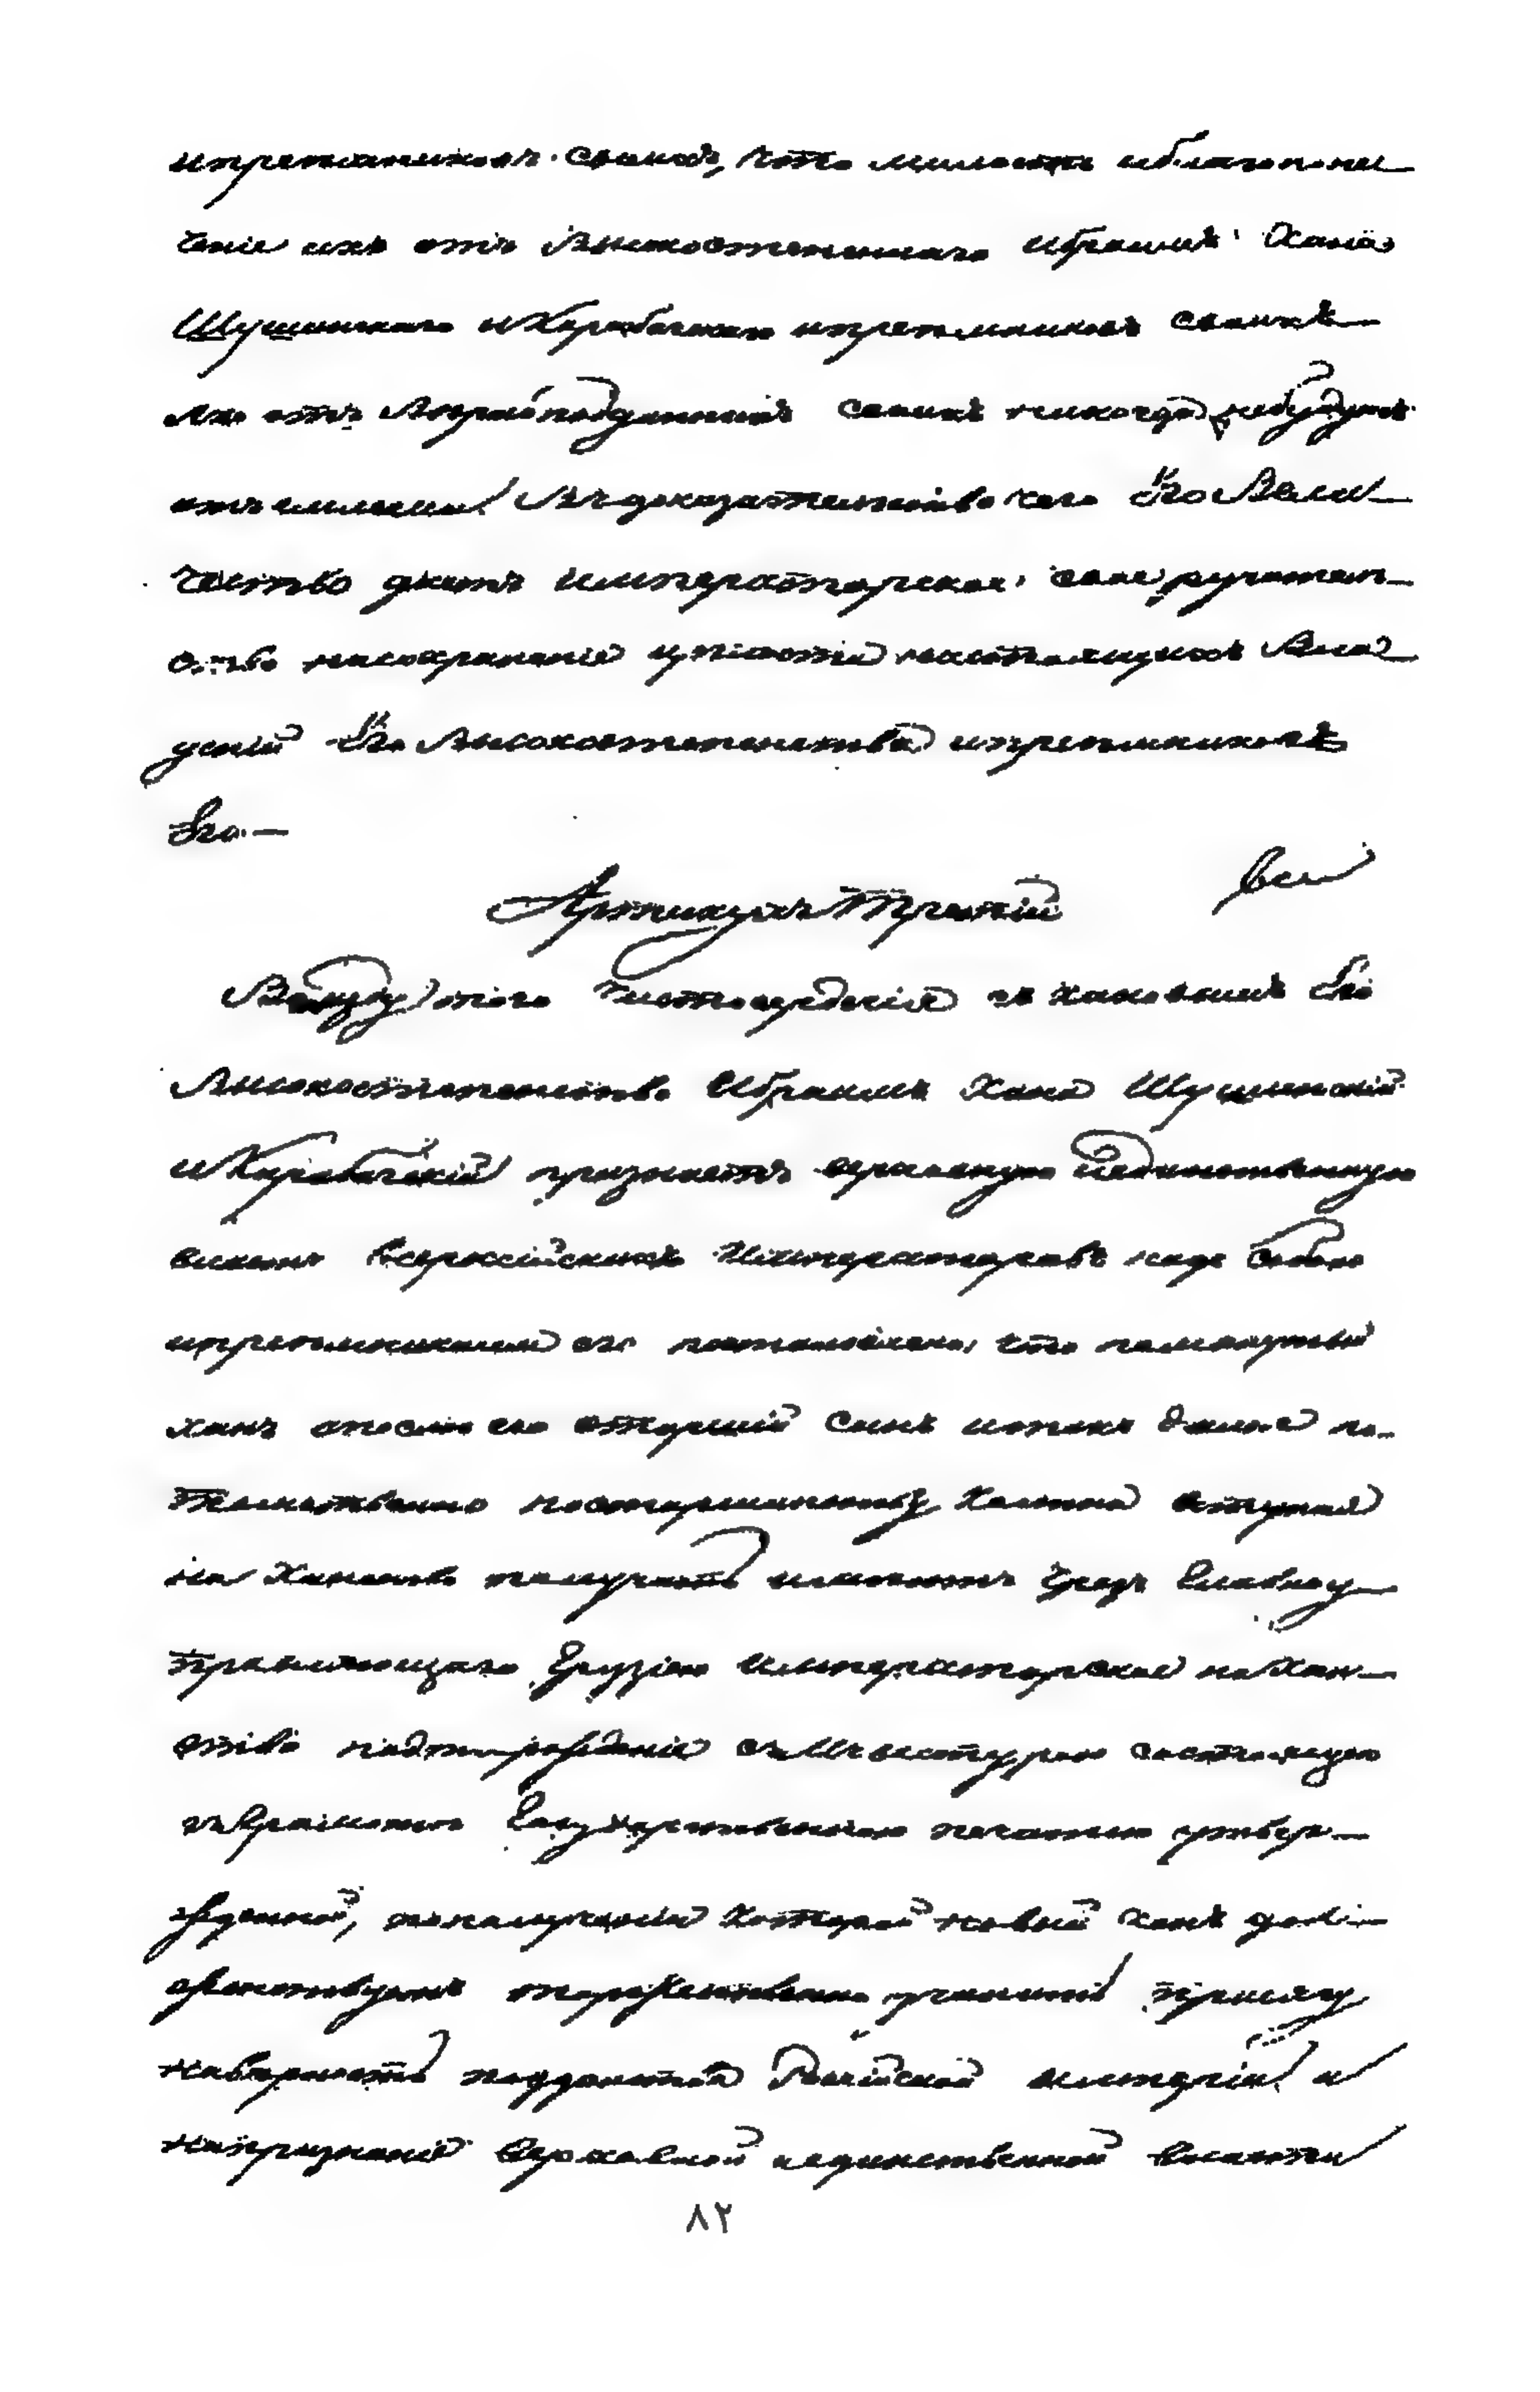 и преемниковъ своихъ, что милость и благопопе
ченіе ихъ отъ Высокостепеннаго Ибрагимъ Хана
Шушинскаго и Карабагскаго и преемниковъ своихъ
яко отъ вѣрноподданныхъ своихъ никогда не будутъ
отъемлемы. Въ доказательство чего Его Вели
чество даетъ Императорское свое ручатель
ство на сохраненіе цѣлости настоящихъ Вла
деній Его Высокостепенства и преемниковъ
Его.—
Артикулъ Третій
Взаду того чистосердечія съ каковымъ Его
Высокостепенство Ибрагимъ Ханъ Шушинскій
и Карабагскій признаетъ верховную и единственную
власть Всероссійскихъ Императоровъ надъ собою
и преемниками его постановлено, что помянутый
ханъ а после его старшій сынъ и такъ далее по
томственно по старшинству колена вступая
на Ханство получать имеютъ чрезъ Главноу
правляющаго Грузіею Императорское на Хан
ство подтвержденіе съ Инвеститурою состоящую
въ Грамоте Государственною печатью утвер
жденной, по полученіи которой новый ханъ дол
женствуетъ торжественно учинить присягу
на верность подданства Россійской Имперіи и
на признаніе верховной и единственной власти
٨٢